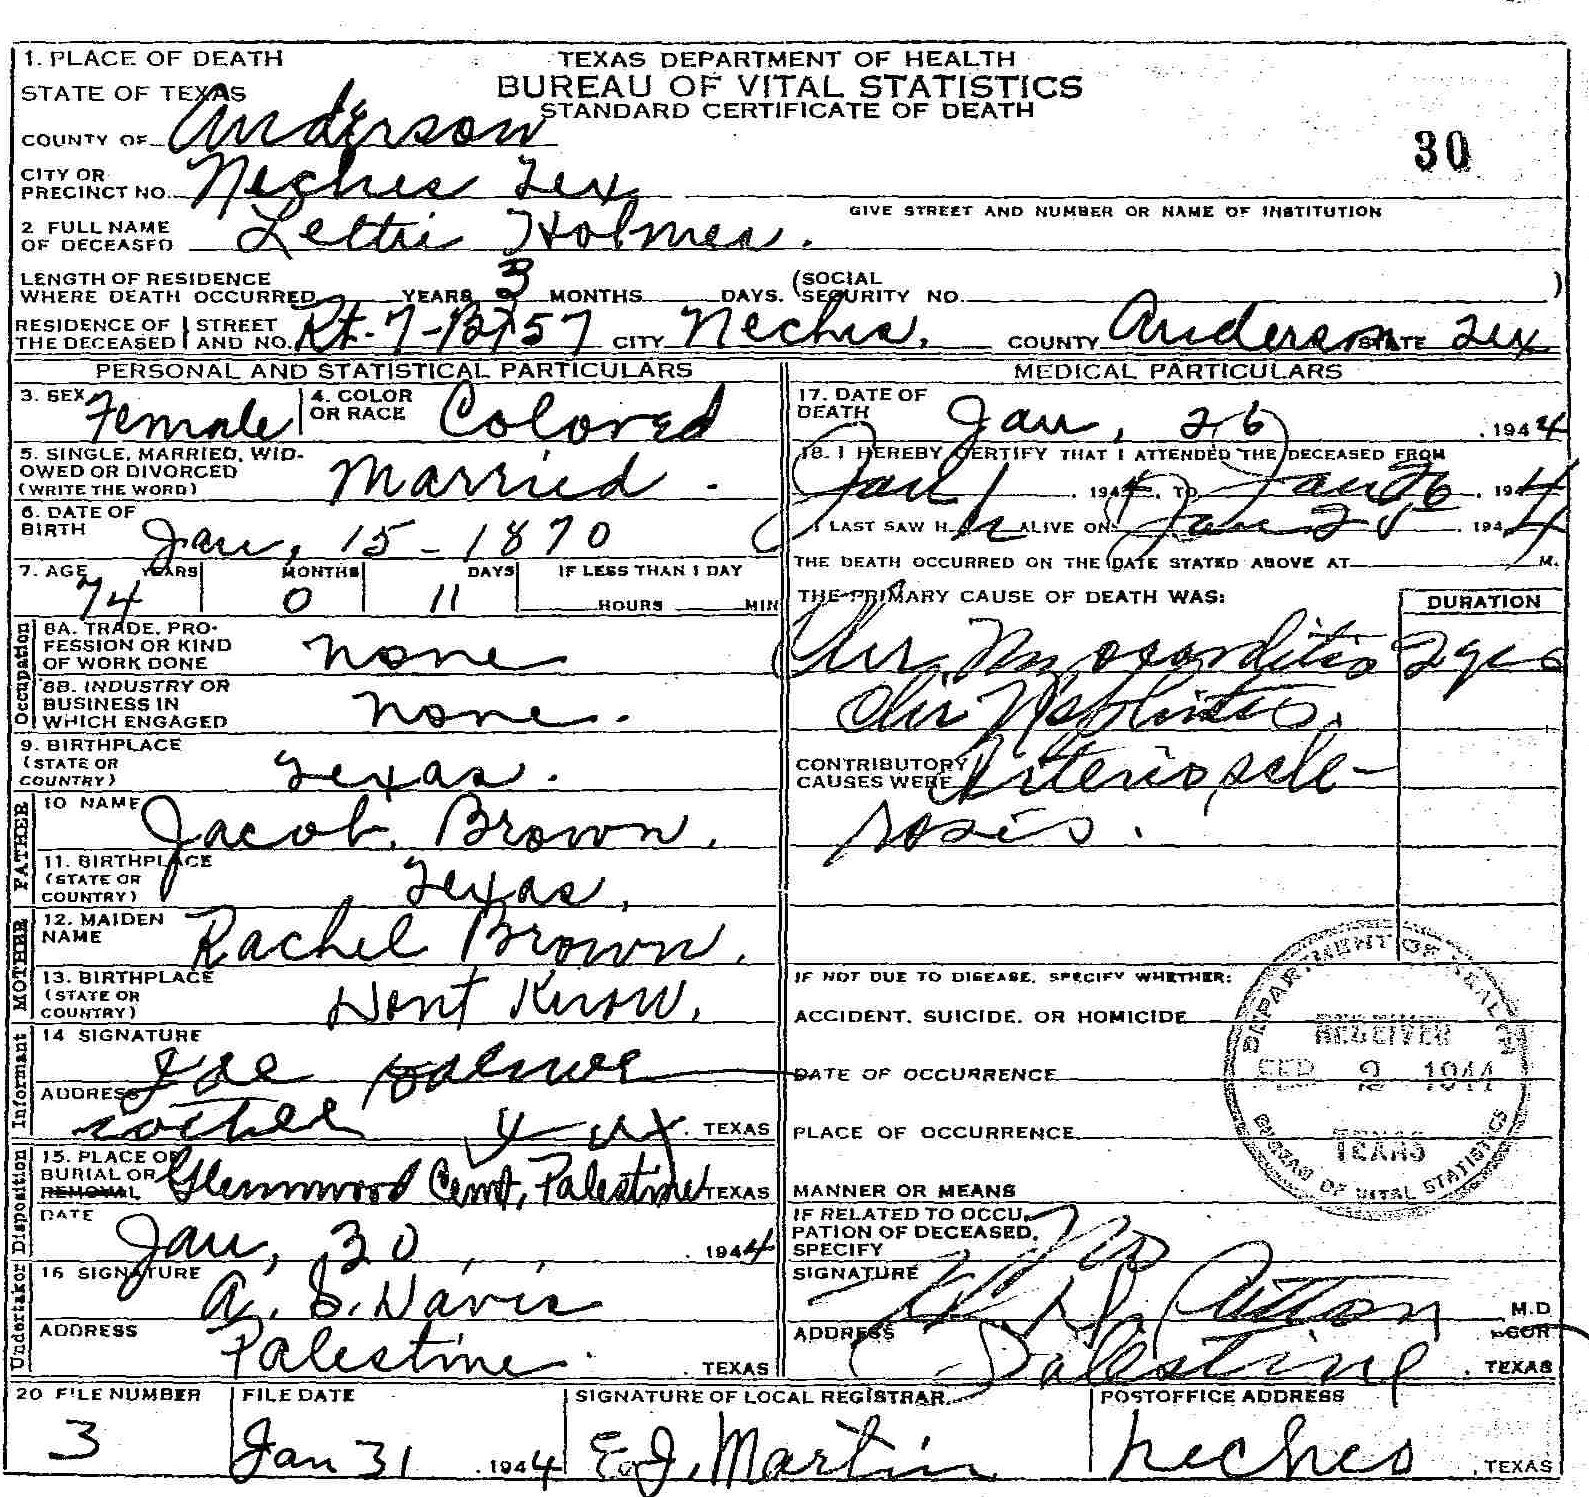 1. PLACE OF DEATH
TEXAS DEPARTMENT OF HEALTH
BUREAU OF VITAL STATISTICS
STANDARD CERTIFICATE OF DEATH
STATE OF TEXAS
COUNTY OF Anderson
30
CITY OR PRECINCT NO. Neches Tex
GIVE STREET AND NUMBER OR NAME OF INSTITUTION
2 FULL NAME OF DECEASED Lettie Holmes.
LENGTH OF RESIDENCE WHERE DEATH OCCURRED YEARS 3 MONTHS DAYS. (SOCIAL SECURITY NO. )
RESIDENCE OF THE DECEASED STREET AND NO. Rt-7-Bx57 CITY Neches. COUNTY Anderson STATE Tex
PERSONAL AND STATISTICAL PARTICULARS
3. SEX Female 4. COLOR OR RACE Colored
5. SINGLE, MARRIED, WIDOWED OR DIVORCED (WRITE THE WORD) Married.
6. DATE OF BIRTH Jan, 15-1870
7. AGE YEARS MONTHS DAYS IF LESS THAN 1 DAY
74 0 11 HOURS MIN
Occupation
8A. TRADE, PROFESSION OR KIND OF WORK DONE none
8B. INDUSTRY OR BUSINESS IN WHICH ENGAGED none.
9. BIRTHPLACE (STATE OR COUNTRY) Texas.
FATHER
10 NAME Jacob. Brown.
11. BIRTHPLACE (STATE OR COUNTRY) Texas,
MOTHER
12. MAIDEN NAME Rachel Brown.
13. BIRTHPLACE (STATE OR COUNTRY) Dont Know.
Informant
14 SIGNATURE Joe Holmes
ADDRESS TEXAS
Disposition
15. PLACE OF BURIAL OR REMOVAL Glennwood Cemt, Palestine TEXAS
DATE Jan, 30, 1944
Undertaker
16 SIGNATURE A. S. Davis
ADDRESS Palestine. TEXAS
MEDICAL PARTICULARS
17. DATE OF DEATH Jan, 26, 1944
18. I HEREBY CERTIFY THAT I ATTENDED THE DECEASED FROM
Jan 1, 1944, TO Jan 26, 1944
I LAST SAW H er ALIVE ON Jan 25 1944
THE DEATH OCCURRED ON THE DATE STATED ABOVE AT M.
THE PRIMARY CAUSE OF DEATH WAS: DURATION
Chr Myocarditis 2 yrs
Chr Nephritis.
CONTRIBUTORY CAUSES WERE Arterioscle-
rosis.
IF NOT DUE TO DISEASE, SPECIFY WHETHER:
ACCIDENT, SUICIDE, OR HOMICIDE
DATE OF OCCURRENCE
PLACE OF OCCURRENCE
MANNER OR MEANS
DEPARTMENT OF HEALTH
RECEIVED
FEB 2 1944
TEXAS
BUREAU OF VITAL STATISTICS
IF RELATED TO OCCUPATION OF DECEASED, SPECIFY No
SIGNATURE M.D.
ADDRESS Palestine, TEXAS
20 FILE NUMBER FILE DATE SIGNATURE OF LOCAL REGISTRAR POSTOFFICE ADDRESS
3 Jan 31, 1944 E. J. Martin Neches, TEXAS